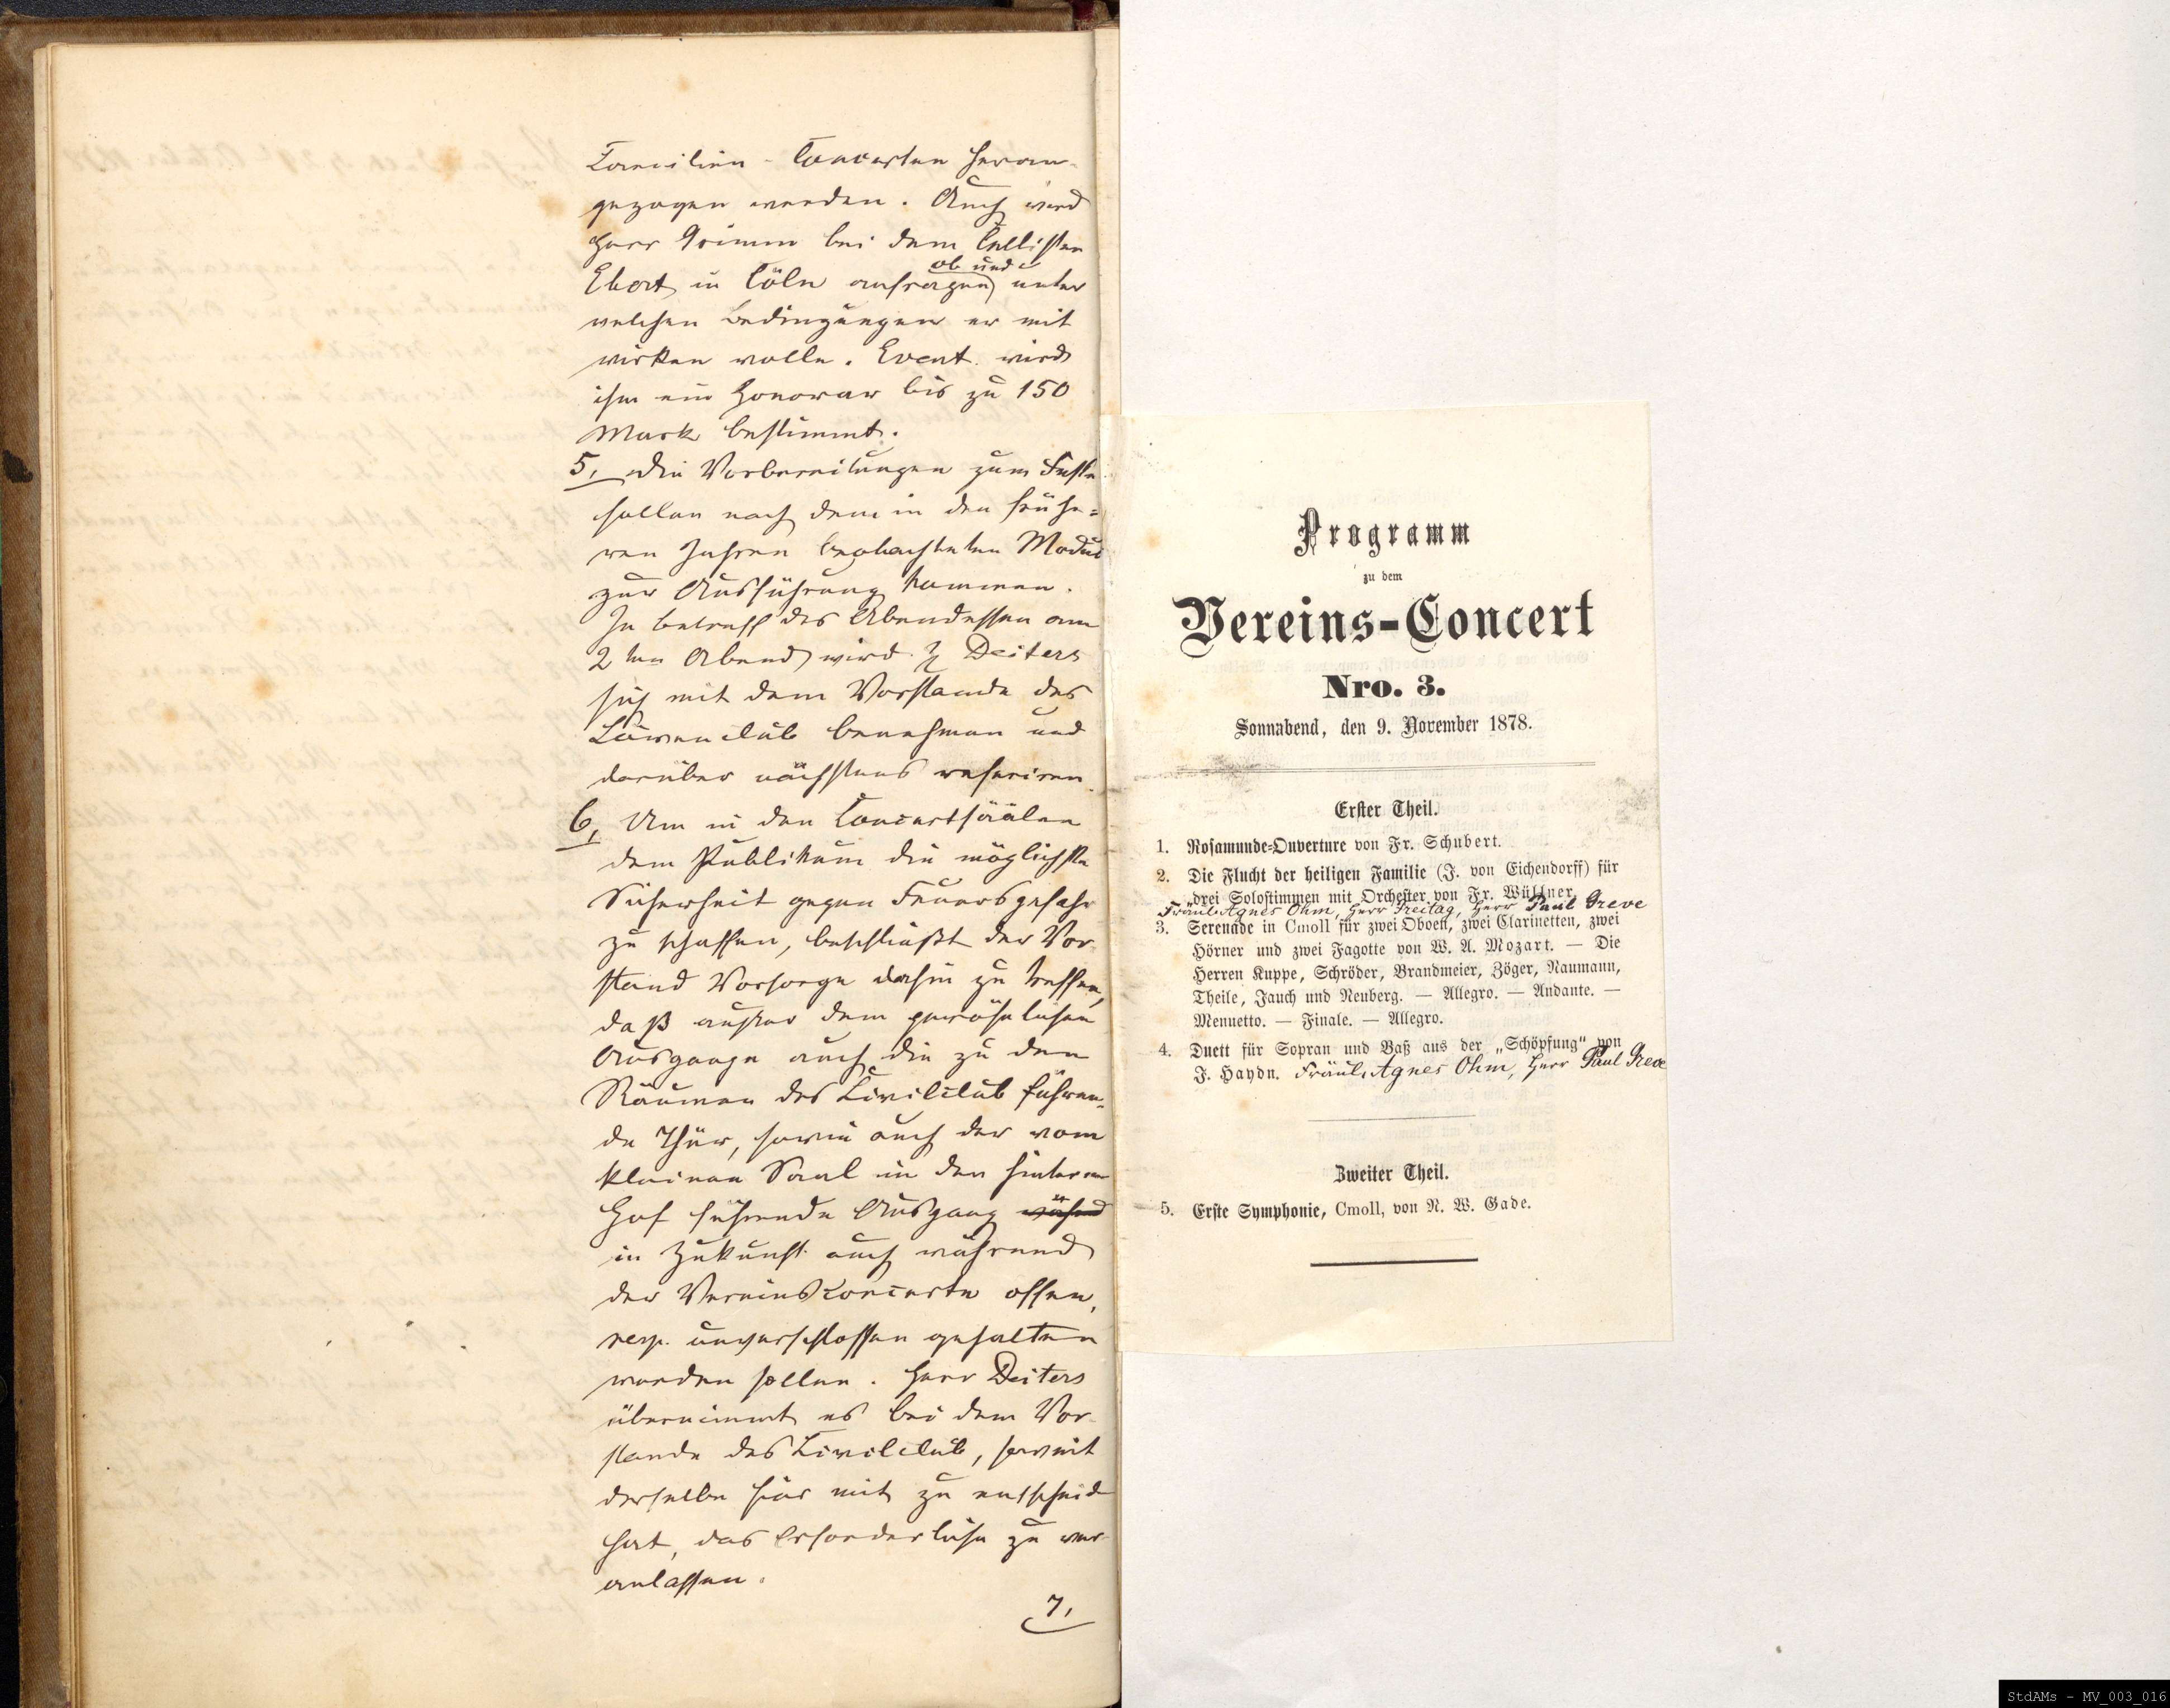 Caecilien-Concerten heran-
gezogen werden. Auch wird
Herr Grimm bei dem Cellisten
Ebert in Cöln anfragen, ob und unter
welchen Bedingungen er mit
wirken wolle. Event. wird
ihm ein Honorar bis zu 150
Mark bestimmt.
5, Die Vorbereitungen zum Feste
sollen nach dem in den frühe=
ren Jahren beobachteten Modus
zur Ausführung kommen.
In betreff des Abendessen am
2ten Abend wird H Deiters
sich mit dem Vorstande des
Löwenclub benehmen und
darüber nächstens referiren.
6, Um in den Concertsäälen
dem Publikum die möglichste
Sicherheit gegen Feuersgefahr
zu schaffen, beschließt der Vor-
stand Vorsorge dahin zu treffen,
daß außer dem gewöhnlichen
Ausgange auch die zu den
Räumen des Civilclub führen-
de Thür, sowie auch der vom
kleinen Saal in den hinteren
Hof führende Ausgang währed
in Zukunft auch während
der Vereinsconcerte offen,
resp. unverschlossen gehalten
werden sollen. Herr Deiters
übernimmt es bei dem Vor-
stande des Civilclub, soweit
derselbe hier mit zu entscheid
hat, das Erforderliche zu ver-
anlassen.
7,
Programm
zu dem
Vereins-Concert
Nro. 3.
Sonnabend, den 9. November 1878.
Erster Theil.
1. Rosamunde-Ouverture von Fr. Schubert.
2. Die Flucht der heiligen Familie (J. von Eichendorff) für
drei Solostimmen mit Orchester von Fr. Wüllner.
Fräul. Agnes Ohm, Herr Freitag, Herr Paul Greve
3. Serenade in Cmoll für zwei Oboen, zwei Clarinetten, zwei
Hörner und zwei Fagotte von W. A. Mozart. — Die
Herren Kuppe, Schröder, Brandmeier, Zöger, Naumann,
Theile, Jauch und Neuberg. — Allegro. — Andante. —
Menuetto. — Finale. — Allegro.
4. Duett für Sopran und Baß aus der „Schöpfung" von
J. Haydn. Fräul. Agnes Ohm, Herr Paul Greve
Zweiter Theil.
5. Erste Symphonie, Cmoll, von N. W. Gade.
StdAMs - MV_003_016